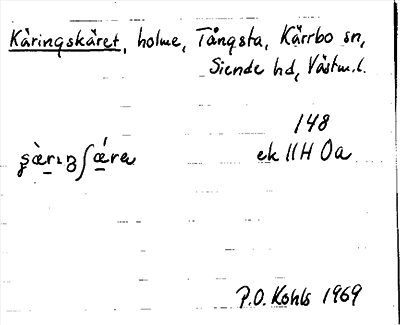 Käringskäret, holme, Tångsta, Kärrbo sn,
Siende hd, Västm.l.
148
ek 11H 0a
P.O. Kohls 1969